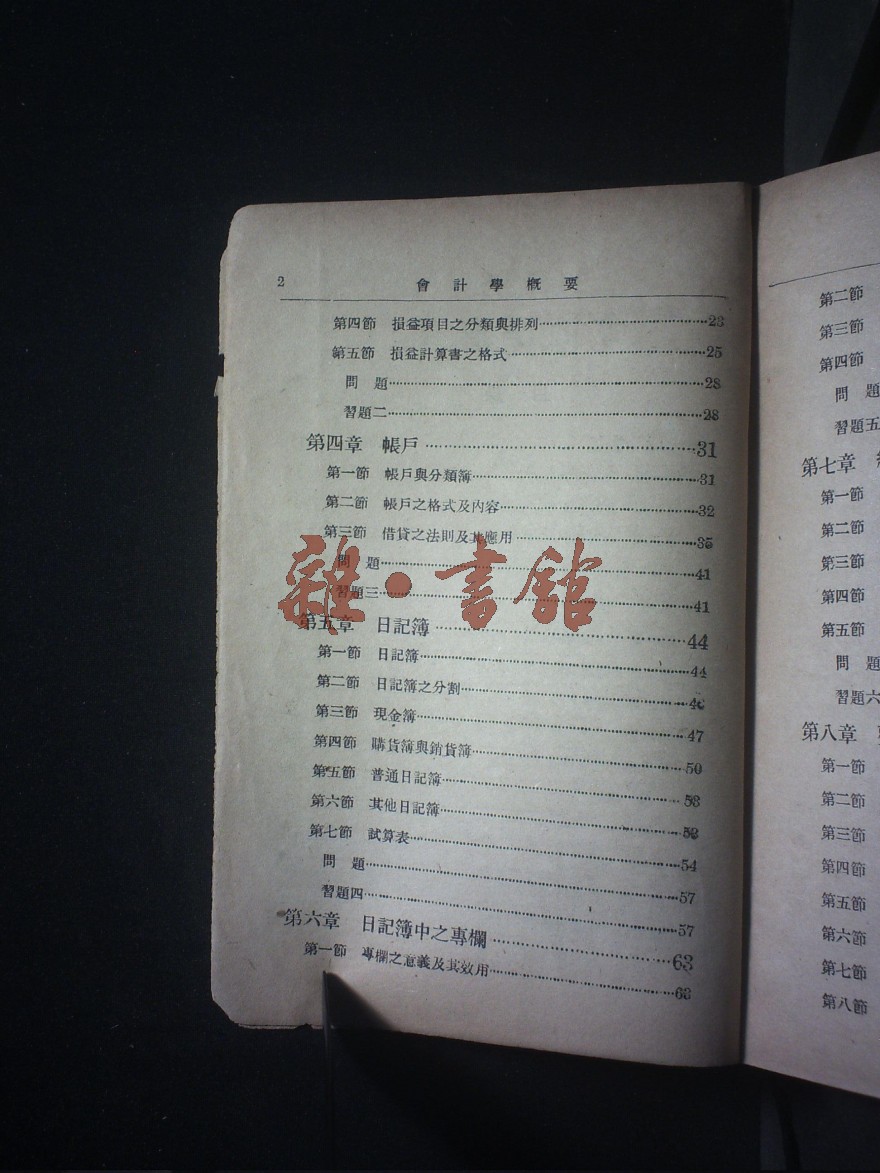 2 會計學概要
第四節 損益項目之分類與排列 23
第五節 損益計算書之格式 25
問題 28
習題二 28
第四章 帳戶 31
第一節 帳戶與分類簿 31
第二節 帳戶之格式及內容 32
第三節 借貸之法則及其應用 35
問題 41
習題三 41
第五章 日記簿 44
第一節 日記簿 44
第二節 日記簿之分割
第三節 現金簿 47
第四節 購貨簿與銷貨簿 50
第五節 普通日記簿
第六節 其他日記簿
第七節 試算表 54
問題 57
習題四 57
第六章 日記簿中之專欄 63
第一節 專欄之意義及其效用 63
雜·書館
第二節
第三節
第四節
問題
習題五
第七章
第一節
第二節
第三節
第四節
第五節
問題
習題六
第八章
第一節
第二節
第三節
第四節
第五節
第六節
第七節
第八節